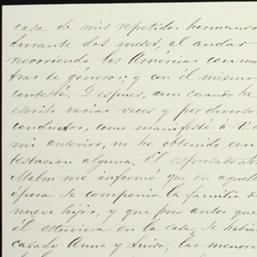 casa de mis repetidos hermanos
durante dos meses, al andar
recorriendo las Américas con mues
tras de género; y con el mismo
contesté. Despues, aun cuando he
escrito varias veces y por diverso
conductor, como manifesté á V. en
mi anterior, no he obtenido con
testacion alguna. El espresado
Malm me informó que en aquella
época se componia la familia de
nueve hijos, y que poco antes que
él estuviera en la casa, se habian
casado Anna y Luisa; las menore